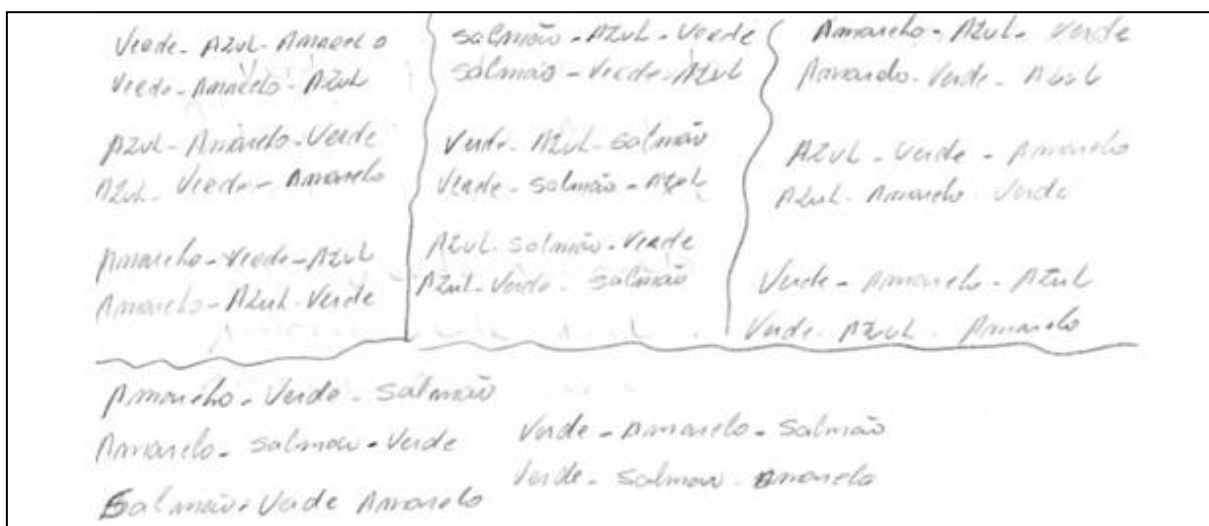 Verde - Azul - Amarelo
Verde - Amarelo - Azul
Azul - Amarelo - Verde
Azul - Verde - Amarelo
Amarelo - Verde - Azul
Amarelo - Azul - Verde
Salmão - Azul - Verde
Salmão - Verde - Azul
Verde - Azul - Salmão
Verde - Salmão - Azul
Azul - Salmão - Verde
Azul - Verde - Salmão
Amarelo - Azul - Verde
Amarelo - Verde - Azul
Azul - Verde - Amarelo
Azul - Amarelo - Verde
Verde - Amarelo - Azul
Verde - Azul - Amarelo
Amarelo - Verde - Salmão
Amarelo - Salmão - Verde
Salmão - Verde Amarelo
Verde - Amarelo - Salmão
Verde - Salmão - Amarelo